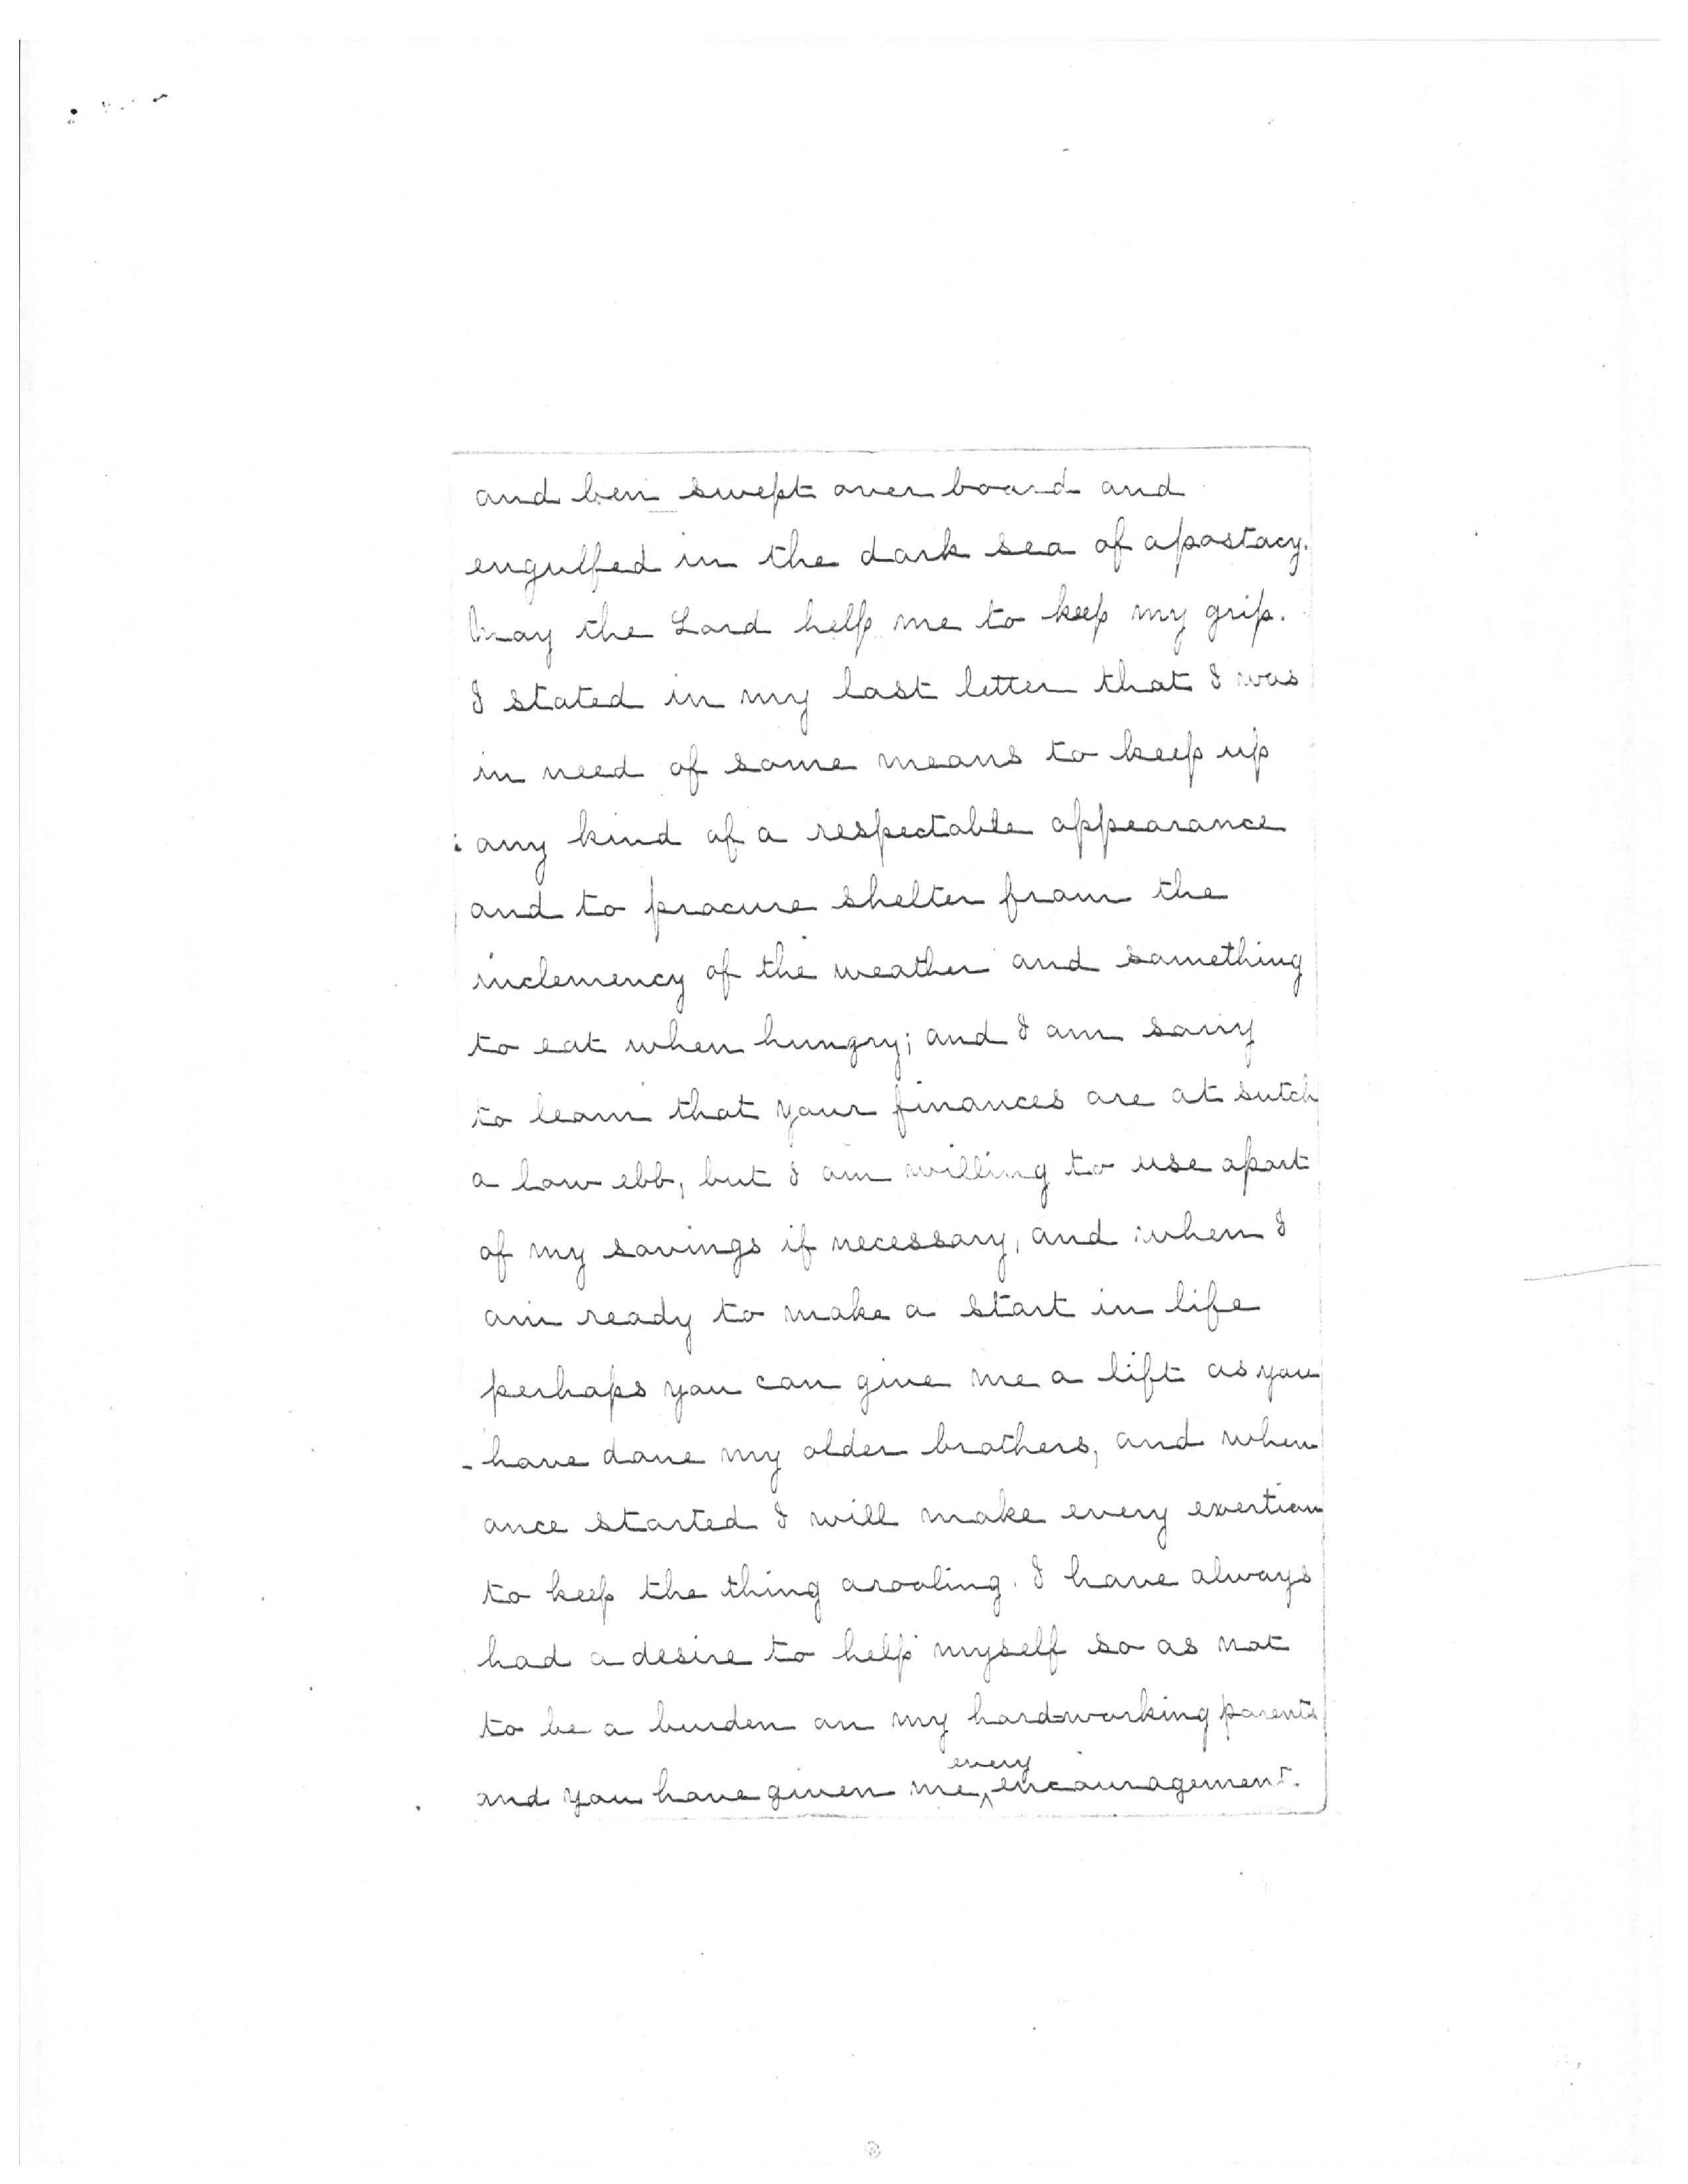 and ben swept over board and
engulfed in the dark sea of apostacy.
May the Lord help me to keep my grip.
I stated in my last letter that I was
in need of some means to keep up
any kind of a respectable appearance
and to procure shelter from the
inclemency of the weather and something
to eat when hungry; and I am sorry
to learn that your finances are at sutch
a low ebb, but I am willing to use apart
of my savings if necessary, and when I
am ready to make a start in life
perhaps you can give me a lift as you
have done my older brothers, and when
once started I will make every exertion
to keep the thing arooling. I have always
had a desire to help myself so as not
to be a burden on my hardworking parents
every
and you have given me, ^ encouragement.